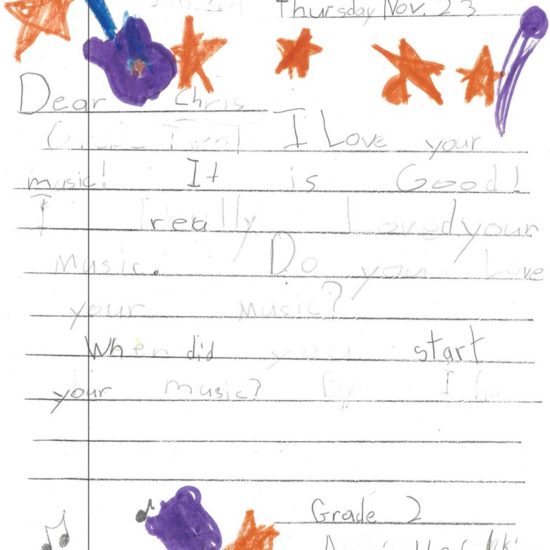 Thursday Nov. 23
Dear Chris
I Love your
music! It is Good!
I really Loved your
music. Do you Love
your music?
When did you start
your music? I
Grade 2